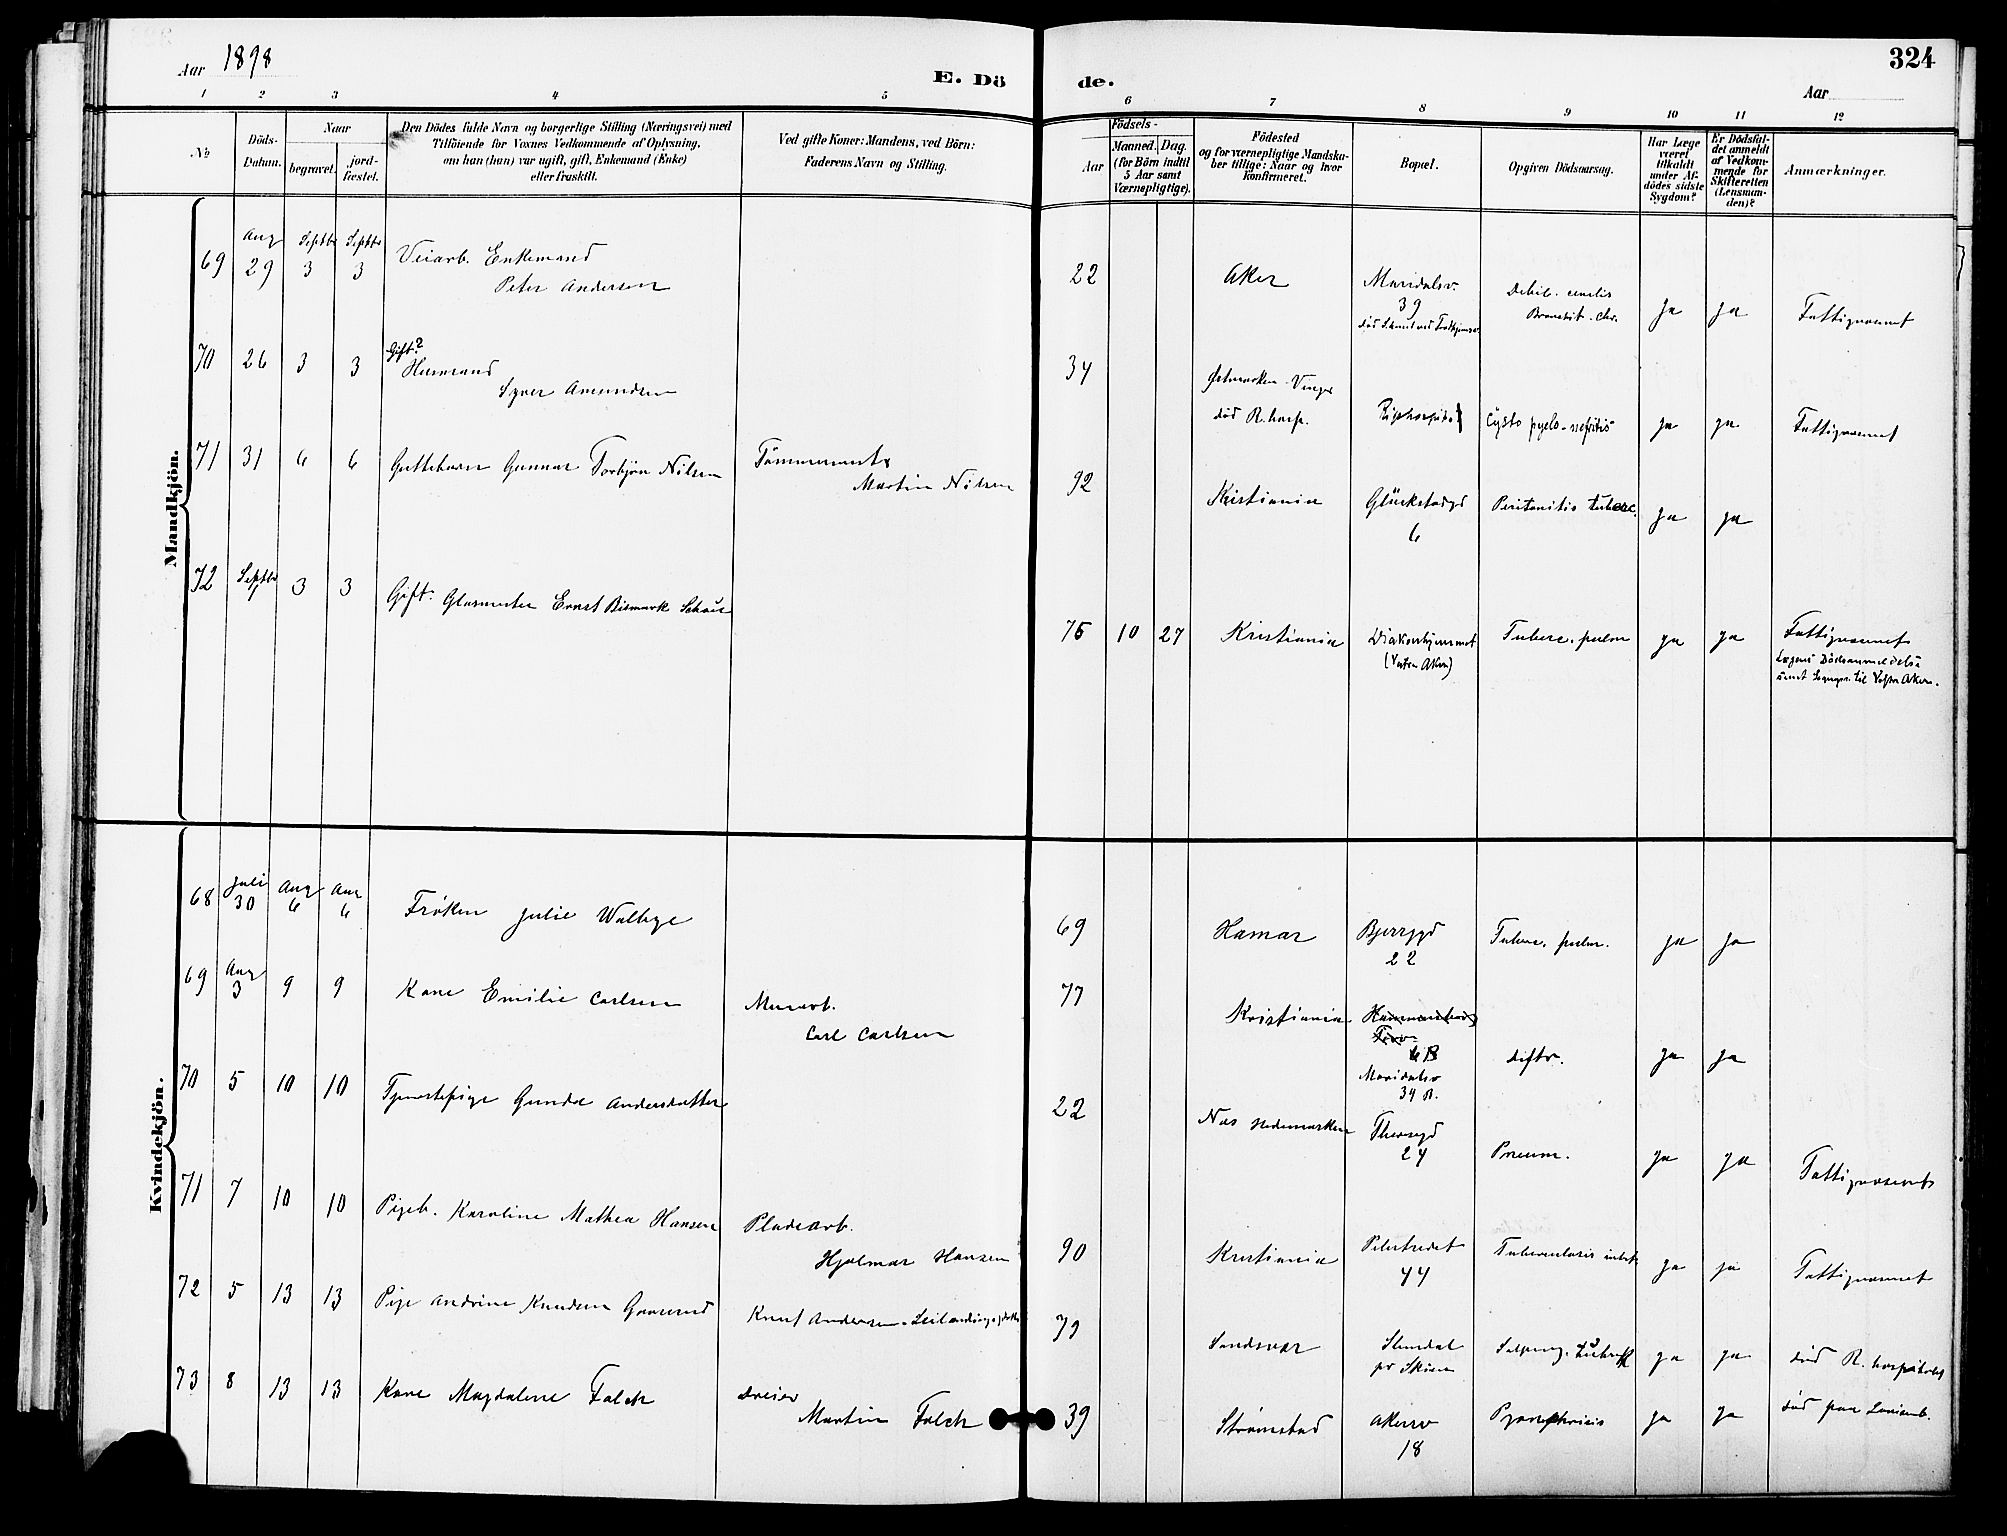 Aar 1898
E. Dö
de.
324
Aar
1 2 3 4 5 6 7 8 9 10 11 12
No
Döds-
Datum.
Naar
begravet.
jord-
fæstet.
Den Dödes fulde Navn og borgerlige Stilling (Næringsvei) med
Tilföiende for Voxnes Vedkommende af Oplysning,
om han (hun) var ugift, gift, Enkemand (Enke)
eller fraskilt.
Ved gifte Koner: Mandens, ved Börn:
Faderens Navn og Stilling.
Födsels-
Aar
Maaned. Dag.
(for Börn indtil
5 Aar samt
Værnepligtige).
Födested
og for værnepligtige Mandska-
ber tillige: Naar og hvor
konfirmeret.
Bopæl.
Opgiven Dödsaarsag.
Har Læge
været
tilkaldt
under Af-
dödes sidste
Sygdom?
Er Dödsfal-
det anmeldt
af Vedkom-
mende for
Skifteretten
(Lensman-
den)?
Anmærkninger.
Mandkjön.
69 Aug 29 Septbr 3 Septbr 3 Veiarb. Enkemand
Peter Andersen
22 Aker Maridalsv.
39
Debil. senilis
Bronchit. chr.
Ja Ja Fattigvæsenet
70 26 3 3 Gift?
Husmand
Syver Amundsen
34 Østmarken Vinger
død R. hosp. Rigshospital Cysto pyelo-nefritis ja ja Fattigvæsenet
71 31 6 6 Guttebarn Gunnar Torbjørn Nilsen Tømmermand
Martin Nilsen
92 Kristiania Glückstadgd
6
Peritonitis tuberc. Ja ja
72 Septbr 1 3 3 Gift. Glasmester Ernst Bismark Schau
75 10 27 Kristiania Diakonhjemmet
(Vestre Aker)
Tuberc. pulm ja ja Fattigvæsenet
Lægens Dødsanmeldelse
til Vestre Aker.
Kvindekjön.
68 Juli 30 Aug 6 Aug 6 Frøken Julie Walbye
69 Hamar Bjerregd
22
Tuberc. pulm. ja ja
69 Aug 3 9 9 Kone Emilie Carlsen Murarb.
Carl Carlsen
77 Kristiania
Maridalsv
34 B.
diftr. ja ja
70 5 10 10 Tjenestepige Gunda Andersdatter
22 Næs Hedemarken Theresegd
24
Pneum. ja ja Fattigvæsenet
71 7 10 10 Pigeb. Karoline Mathea Hansen Pladearb.
Hjalmar Hansen
90 Kristiania Pilestrædet
44
Tuberculosis intest. ja ja Fattigvæsenet
72 5 13 13 Pige Andrine Knudsen Knut Andersen
79 Sandsvær
pr Skien
Salping. ja ja død R. hospitalet
73 8 13 13 Kone Magdalene Falch Dreier
Martin Falch
39 Strømstad Akersv
18
Pyonephrosis ja ja død paa